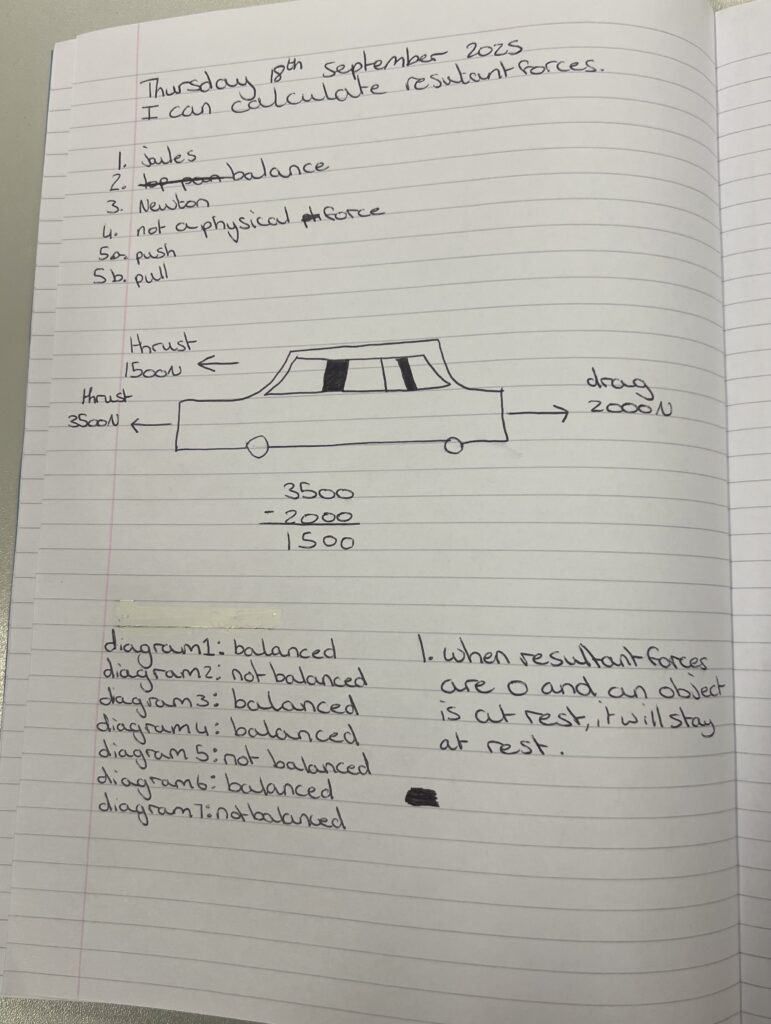 Thursday 18th september 2025
I can calculate resutant forces.
1. joules
2. balance
3. Newton
4. not a physical force
5a. push
5b. pull
thrust
1500N
thrust
3500N
drag
2000N
3500
- 2000
1500
diagram1: balanced
diagram2: not balanced
diagram3: balanced
diagram4: balanced
diagram 5: not balanced
diagram6: balanced
diagram7: not balanced
1. when resultant forces
are 0 and an object
is at rest, it will stay
at rest.